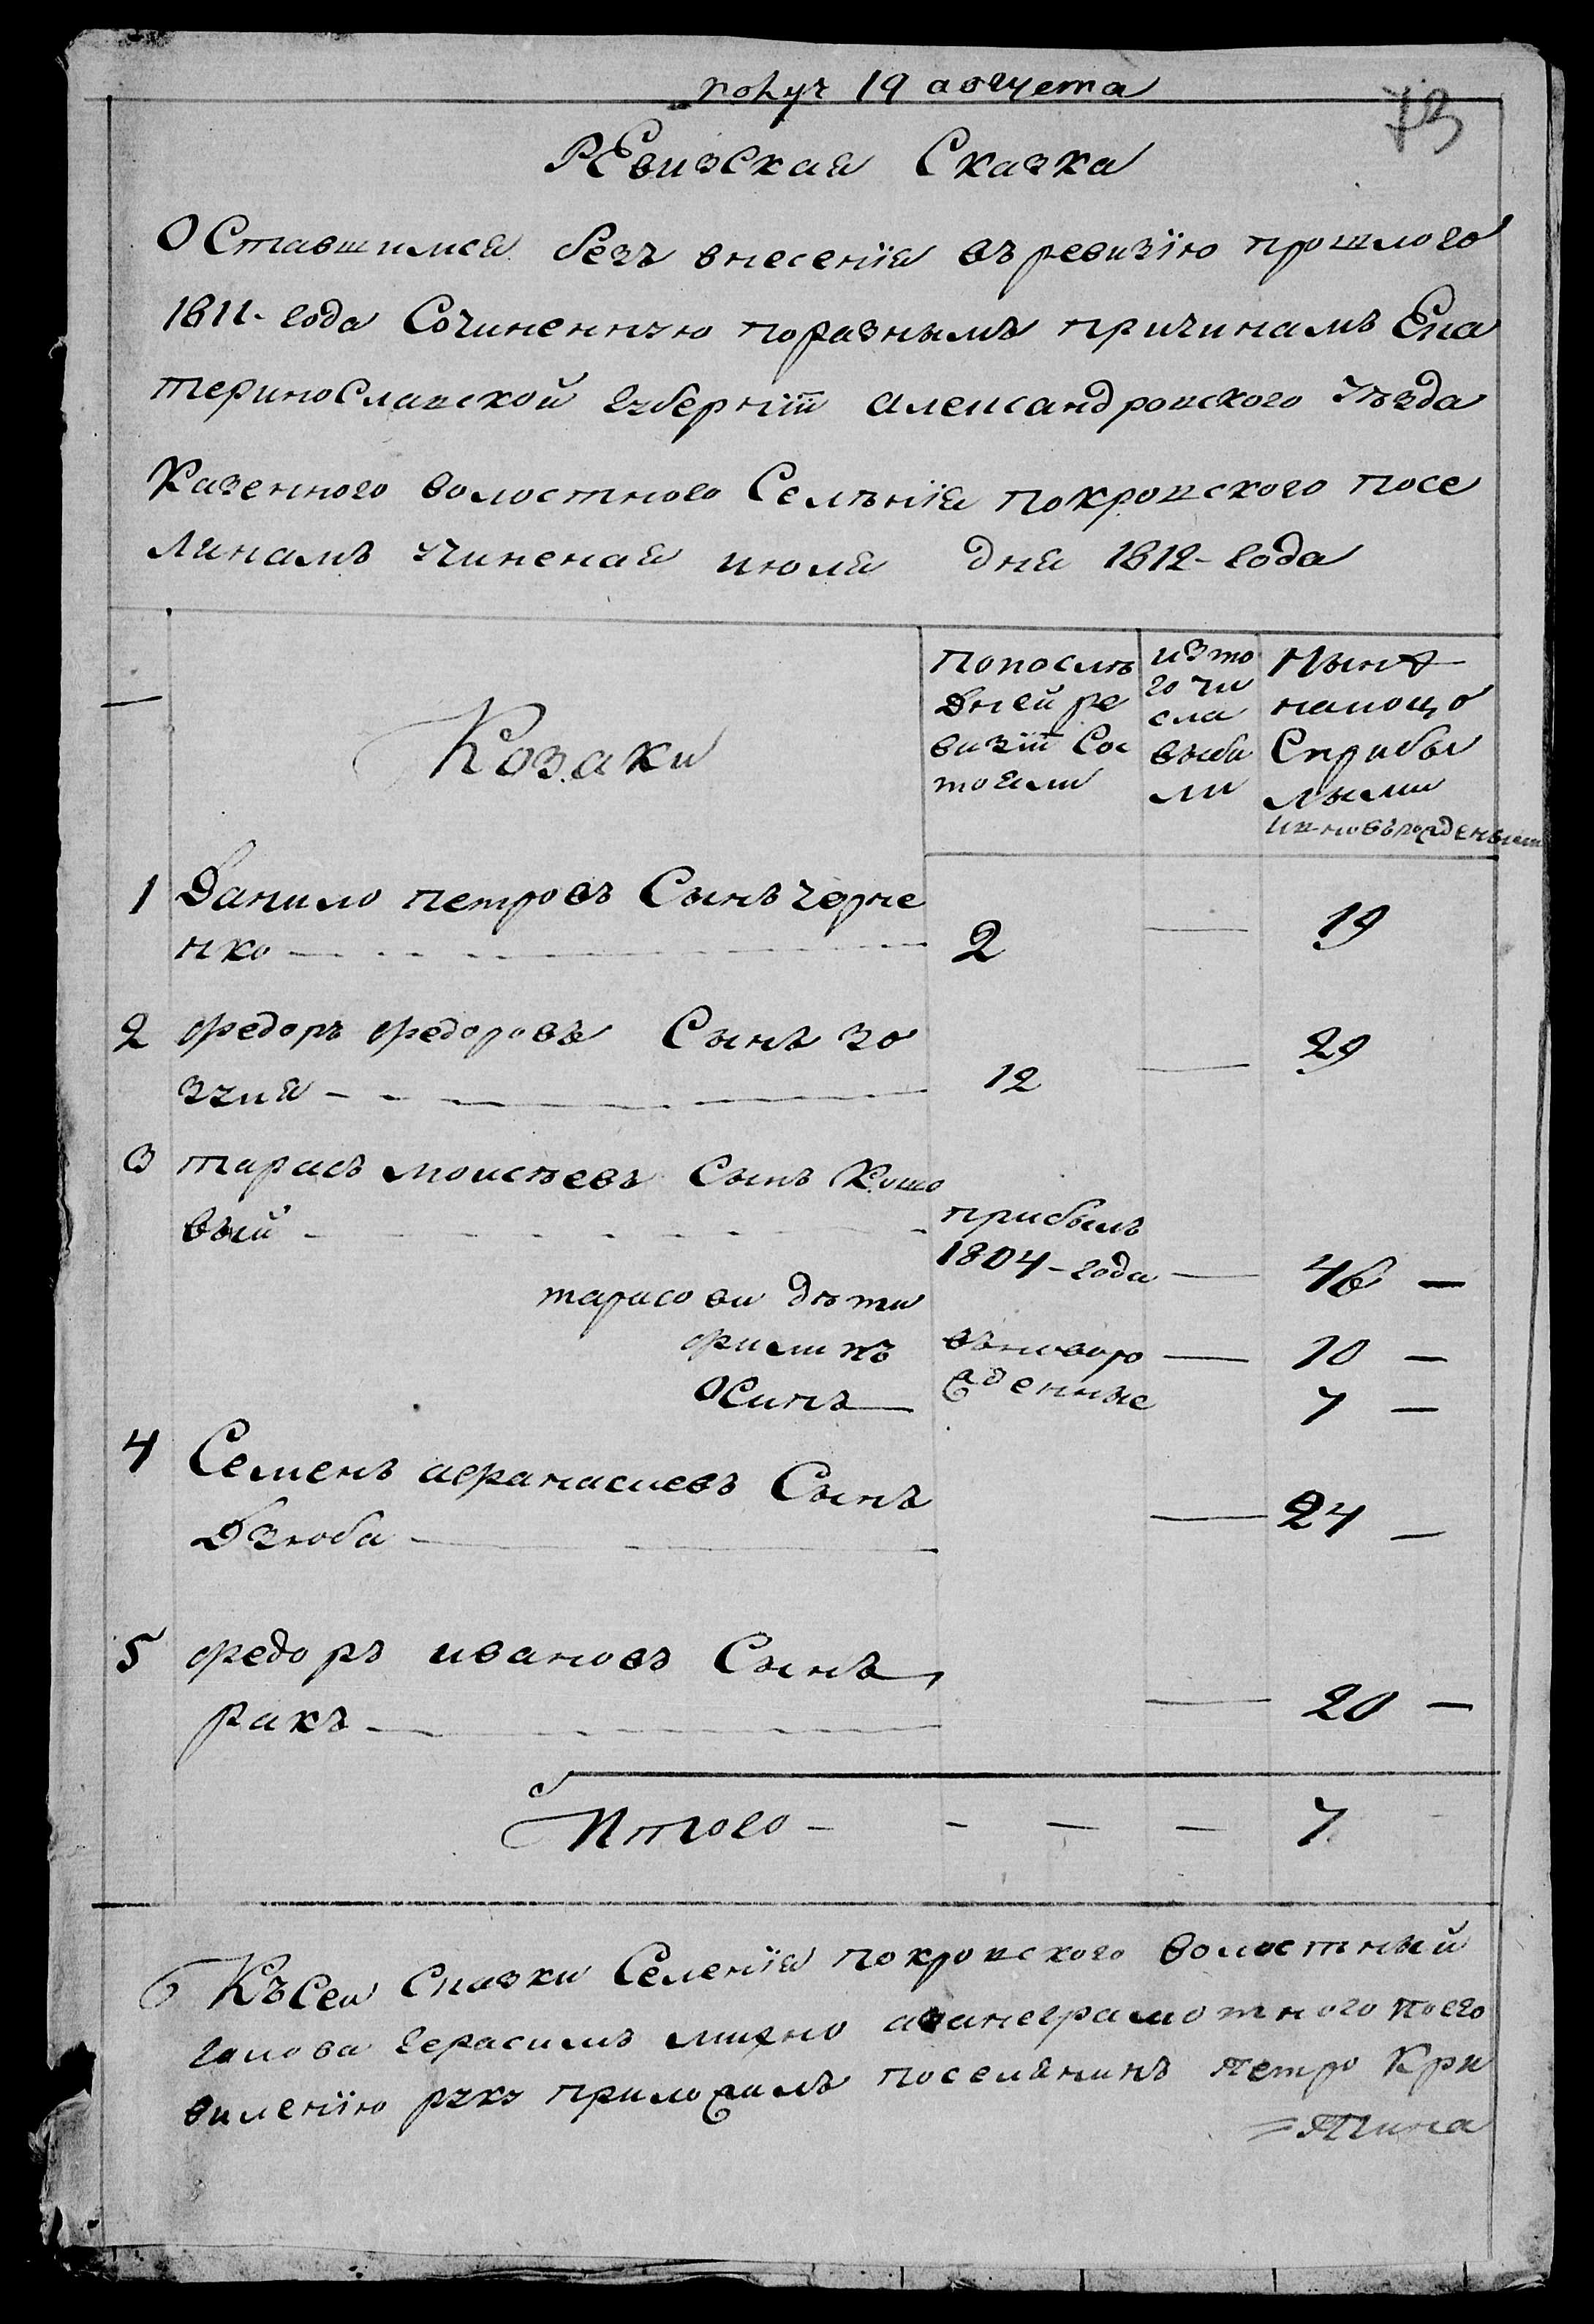 получ 19 августа
73
РЕвизская Сказка
ОСтавшимся безъ внесенїя въ ревизїю прошлого
1811-года Сочиненную поразнымъ причинамъ Ека
теринославской губернїи александровского уѣзда
Казенного волостного Селѣнїя покровского посе
линамъ учиненая июля дня 1812-года
Козаки
попослѣ
дней ре
визїи Сос
тояли
изто
го чи
сла
выбы
ли
Нынѣ
налицо
Сприбы
лыми
иновърождеными
1 Данило петровъ Сынъ черне
нко
2
19
2 федоръ федоровъ Сынъ зо
зуля
12
29
3 тарасъ моисѣевъ Сынъ Кошо
вый
прибылъ
1804-года
46
тарасови дѣти
филипъ
вьноворо
10
Осипъ
жденные
7
4 Семенъ афанасиевъ Сынъ
Дзюба
24
5 федоръ ивановъ Сынъ
ракъ
20
Итого
7
Къ Сей Сказки Селенїя покровского волостный
голова герасимъ михно аванеграмотного поего
вилению руку приложилъ поселянинъ петро Кри